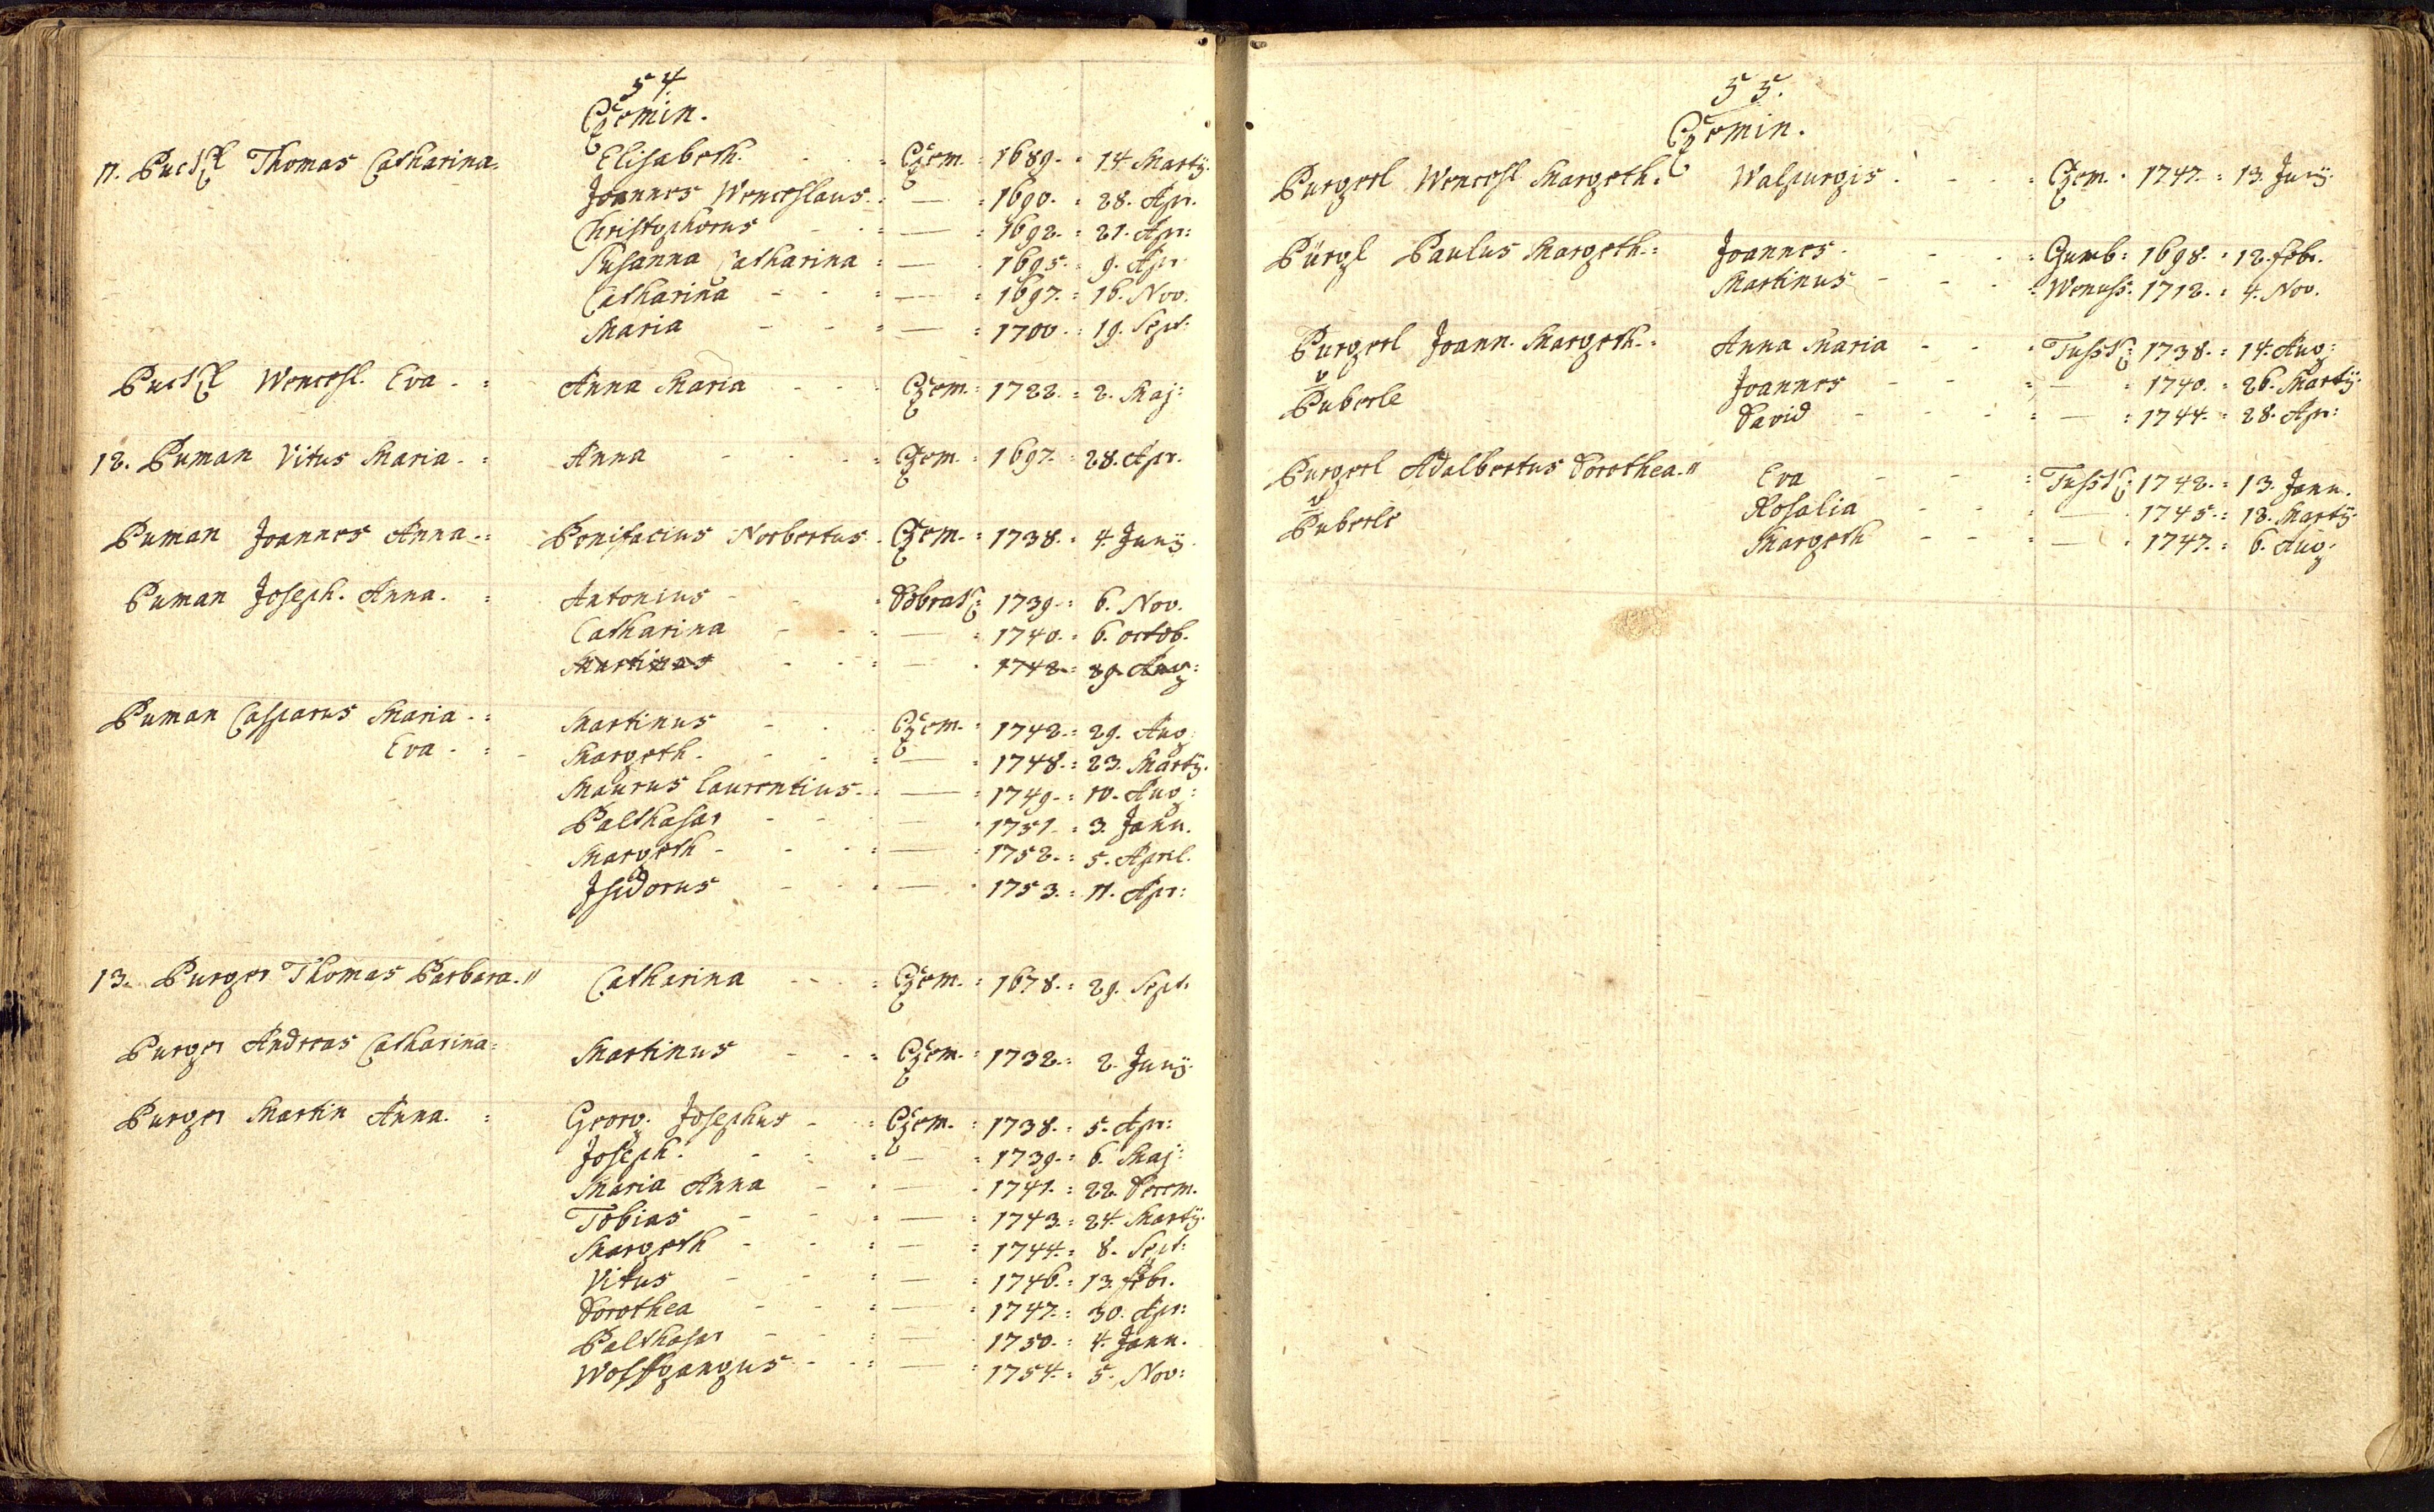 54.
Czemin.
11. Thomas Catharina = Elisabeth. - - = Czem. = 1689. = 14. Martÿ.
Joannes Wenceslaus. = — = 1690. = 28. Apr.
Christophorus - - = — = 1692. = 21. Apr:
Susanna Catharina = — = 1695. = 9. Apr.
Catharina - - = — = 1697. = 16. Nov.
Maria - - = — = 1700. = 19. Sept:
Wencesl. Eva. = Anna Maria - - Czem. = 1722. = 2. Maj:
12. Puman Vitus Maria. = Anna - - = Czem. = 1697. = 28. Apr.
Puman Joannes Anna. = Bonifacius Norbertus. Czem. = 1738. = 4. Junÿ.
Puman Joseph. Anna. = Antonius - - = Dobratz: 1739. = 6. Nov.
Catharina - - = — = 1740. = 6. octob.
Martinus - - = — = 1742. = 29. Aug:
Puman Casparus Maria. = Martinus - - Czem. = 1742. = 29. Aug:
Eva. = - Margeth. - - = — = 1748. = 23. Martÿ.
Maurus Laurentius. = — = 1749. = 10. Aug:
Balthasar - - — = 1751. = 3. Janu.
Margeth - - = — = 1752. = 5. April.
Isidorus - - = — = 1753. = 11. Apr:
13. Purger Thomas Barbara. = Catharina - - = Czem. = 1678. = 29. Sept:
Purger Andreas Catharina = Martinus - - = Czem. = 1732. = 2. Junÿ.
Purger Martin Anna. = Georg. Josephus - = Czem. = 1738. = 5. Apr:
Joseph. - - = — = 1739. = 6. Maj:
Maria Anna - - — = 1741. = 22. Decem.
Tobias - - = — = 1743. = 24. Martÿ.
Margeth - - = — = 1744. = 8. Sept:
Vitus - - = — = 1746. = 13. febr.
Dorothea - - = — = 1747. = 30. Apr:
Balthasar - - = — = 1750. = 4. Janu.
Wolffgangus - - = — = 1754. = 5. Nov:
55.
Czemin.
Purgerl Wencesl Margeth. = Walpurgis. - - = Czem. = 1747. = 13. Junÿ.
Pürgl Paulus Margeth. = Joannes. - - = Gumb: 1698. = 12. febr.
Martinus - - = Wenuss. 1712. = 4. Nov.
Purgerl Joann. Margeth. = Anna Maria - - = Tussk: 1738. = 14. Aug:
v Joannes - - = — = 1740. = 26. Martÿ.
Puberle David - - = — = 1744. = 28. Apr:
Purgerl Adalbertus Dorothea. = Eva - - = Tussk: 1742. = 13. Janu.
v Rosalia - - = — = 1745. = 13. Martÿ.
Puberle Margeth - - = — = 1747. = 6. Aug: